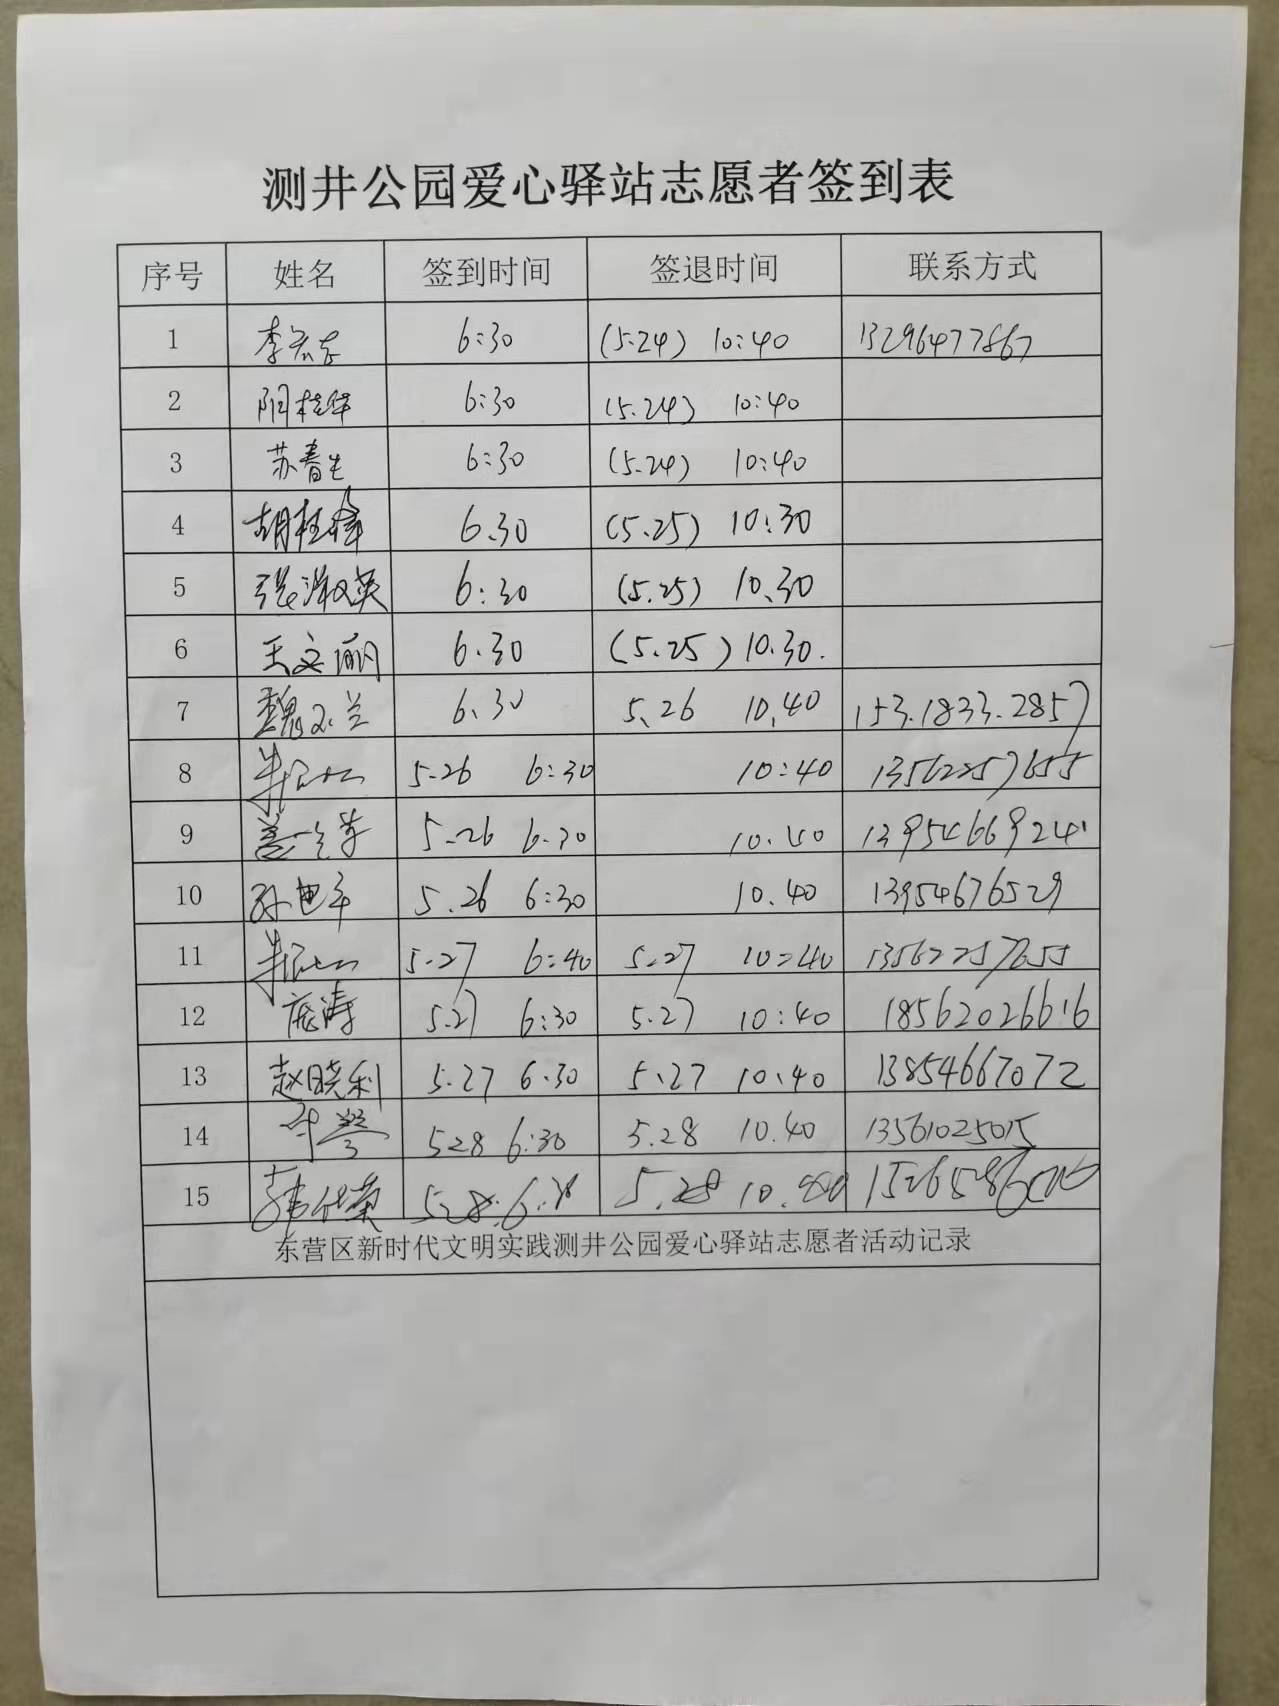 测井公园爱心驿站志愿者签到表
序号 姓名 签到时间 签退时间 联系方式
1 李宏志 6:30 (5.24) 10:40 13296477867
2 阴桂华 6:30 (5.24) 10:40
3 苏春生 6:30 (5.24) 10:40
4 胡桂峰 6.30 (5.25) 10:30
5 张淑英 6:30 (5.25) 10.30
6 王文丽 6.30 (5.25) 10.30.
7 魏玉兰 6.30 5.26 10.40 153.1833.2857
8 5.26 6:30 10:40 13562257655
9 5.26 6.30 10.40 13954669241
10 5.26 6:30 10.40 13954676529
11 5.27 6:40 5.27 10:40 13562257655
12 庞涛 5.27 6:30 5.27 10:40 18562026616
13 赵晓利 5.27 6.30 5.27 10.40 13854667072
14 528 6:30 5.28 10.40 13561025015
15 5.28 5.28
东营区新时代文明实践测井公园爱心驿站志愿者活动记录